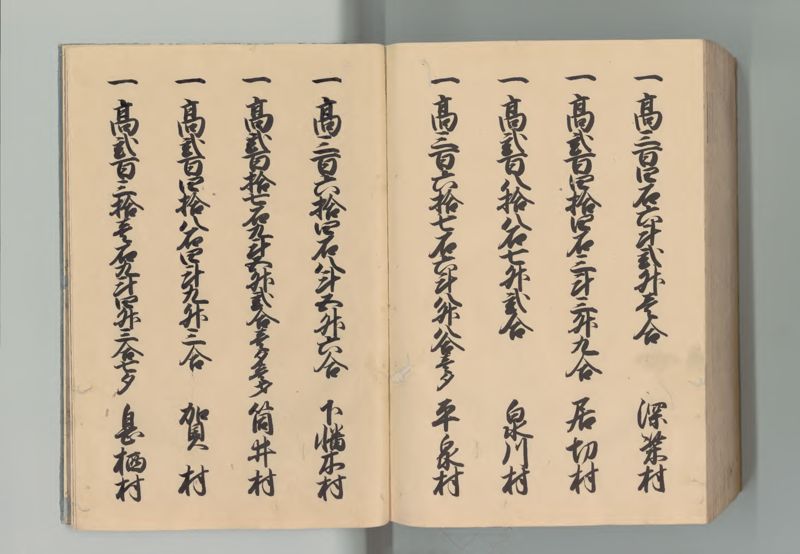 一高三百四石六斗弐升壱合 深芝村
一高弐百四拾四石三斗三升九合 居切村
一高弐百八拾八石七升弐合 泉川村
一高三百六拾七石六斗八升八合壱夕 平泉村
一高三百六拾四石八斗五升六合 下幡木村
一高弐百拾七石九斗五升弐合壱夕壱才 筒井村
一高弐百四拾八石四斗九升三合 賀村
一高弐百三拾壱石九斗四升三合七夕 息栖村